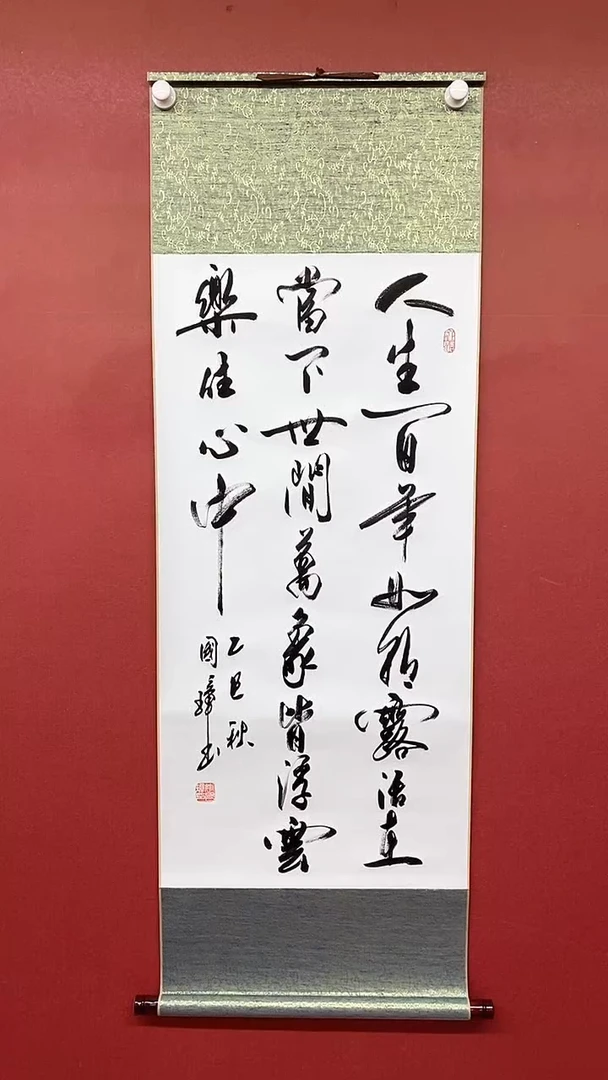 人生百年如朝露活在
當下世間萬象皆浮雲
樂住心中
乙巳秋
國璋书